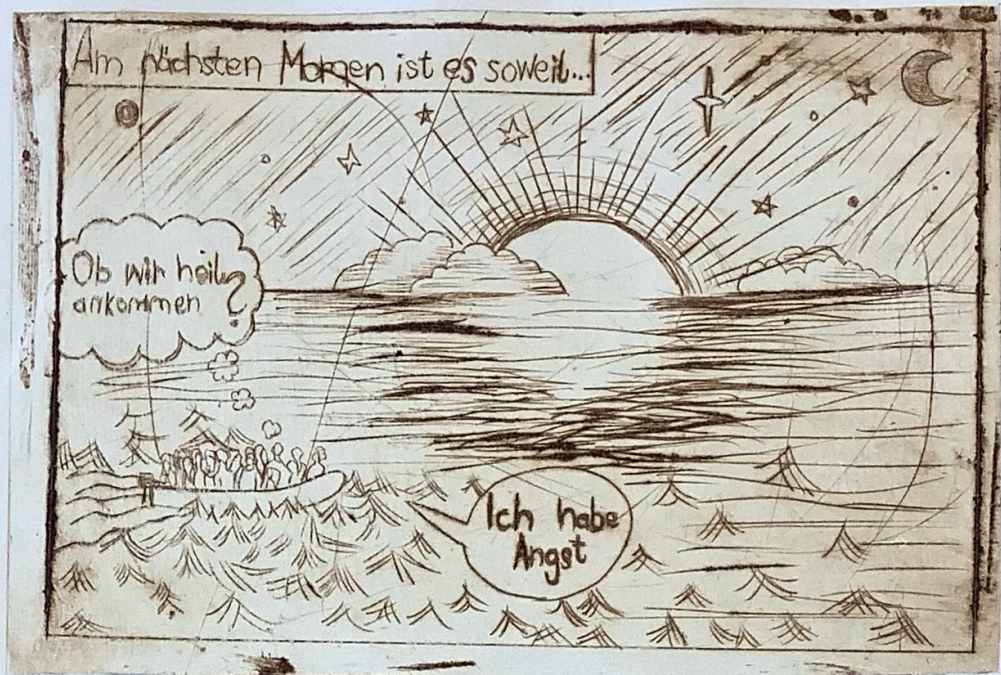 Am nächsten Morgen ist es soweit...
Ob wir heil
ankommen?
Ich habe
Angst